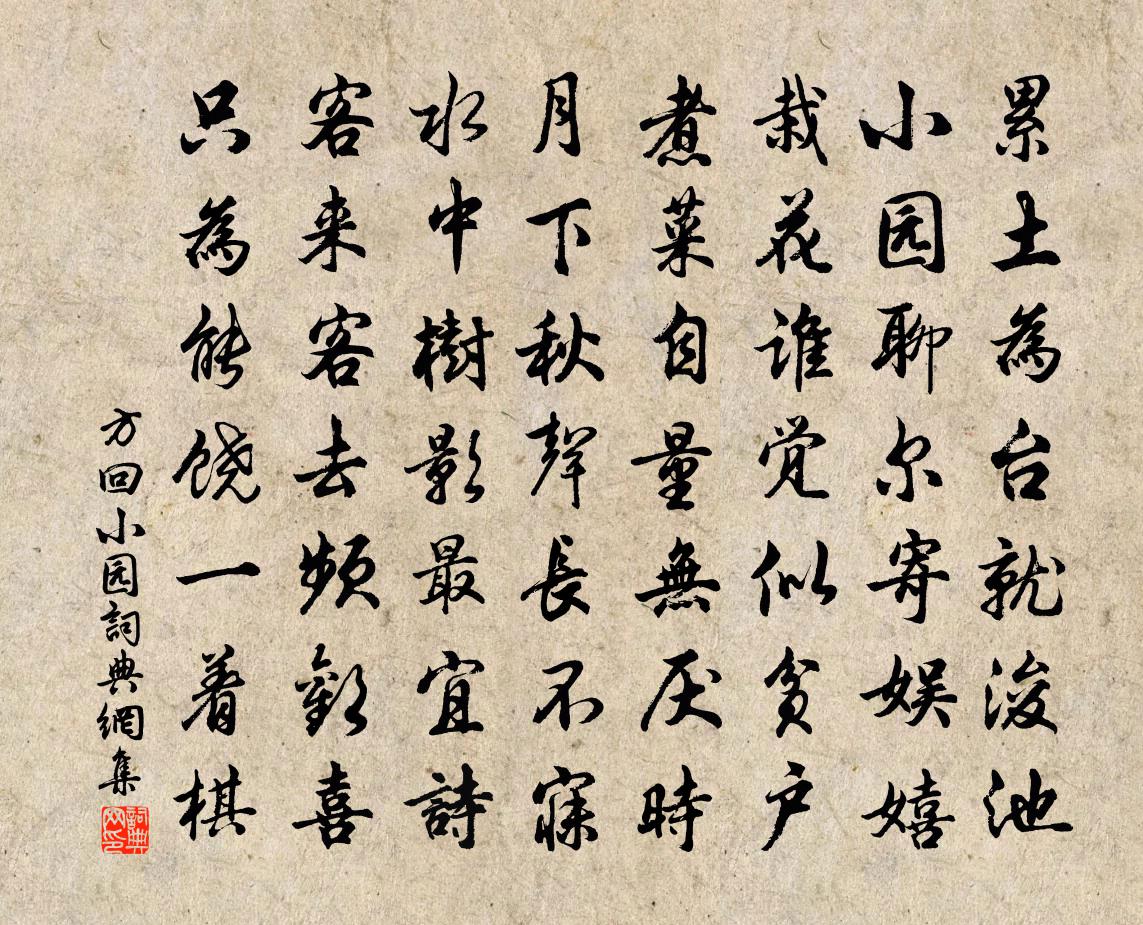 累土為台就浚池
小园聊尔寄娱嬉
栽花谁觉似贫户
煮菜自量無厌時
月下秋聲長不寐
水中樹影最宜詩
客来客去频歡喜
只為能饶一着棋
方回小园詞典網集
詞典网印